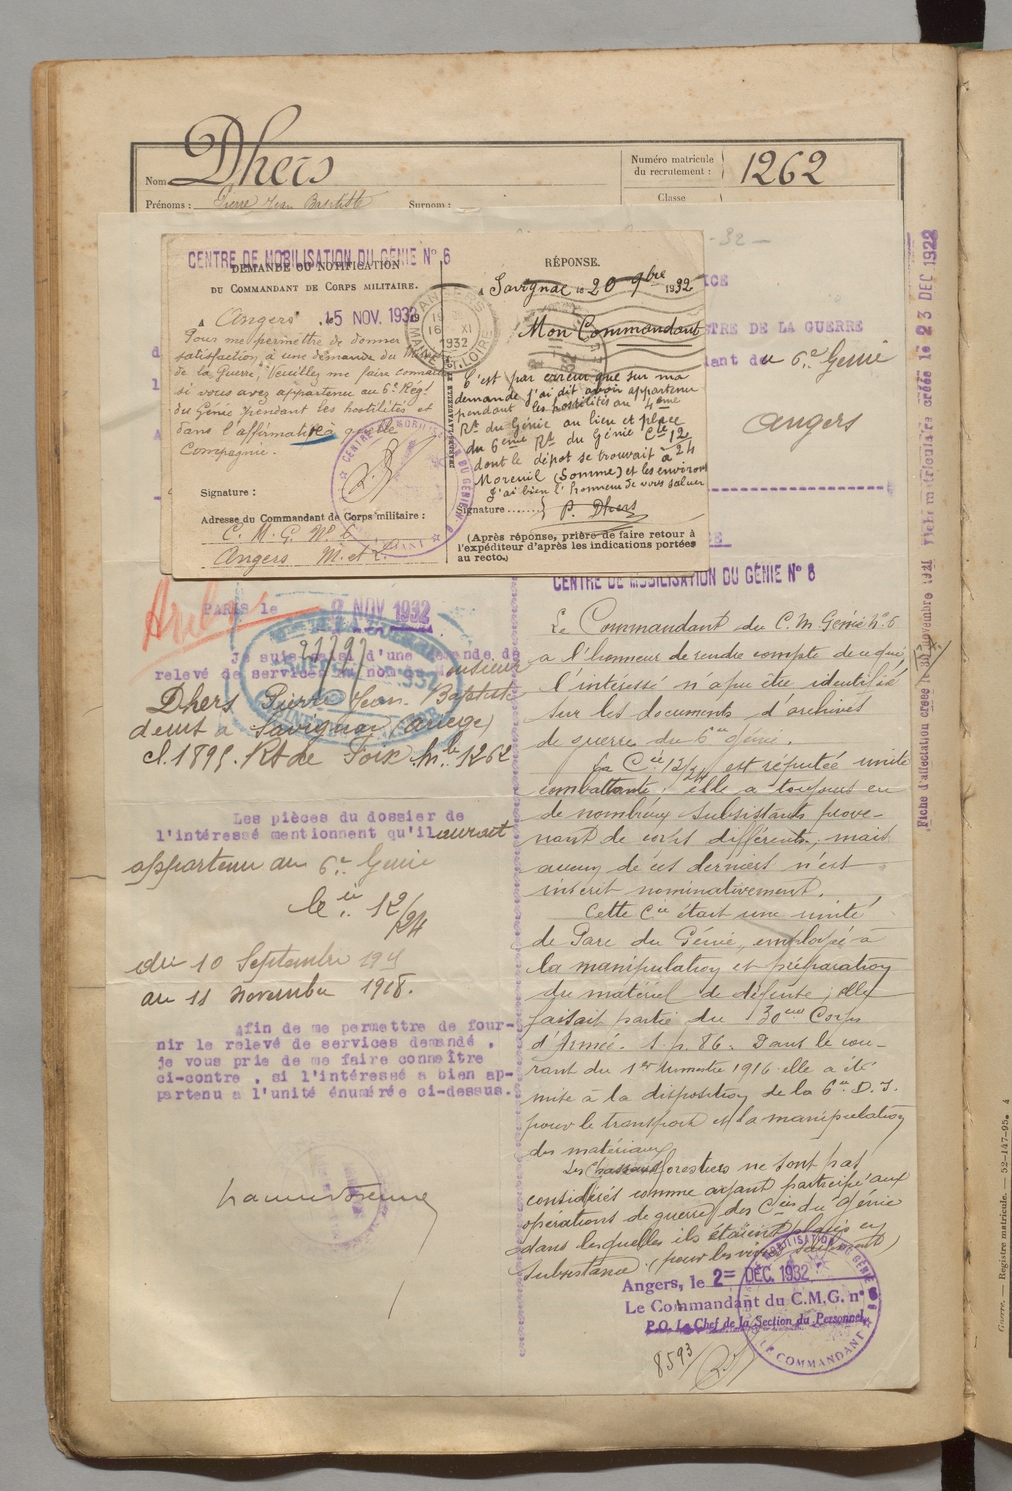 Nom Dhers
Prénoms : Pierre Jean Baptiste Surnom :
Numéro matricule
du recrutement : 1262
Classe
CENTRE DE MOBILISATION DU GÉNIE N° 6
DEMANDE OU NOTIFICATION
DU COMMANDANT DE CORPS MILITAIRE.
A Angers le 15 NOV. 1932
Pour me permettre de donner
satisfaction à une demande du
de la Guerre, Veuillez me faire connaître
si vous avez appartenu au 6e Régt
du Génie pendant les hostilités et
dans l'affirmative à quelle
Compagnie.
Signature :
Adresse du Commandant de Corps militaire :
C. M. G. N° 6
Angers M. et L.
ANGERS
16 XI
1932
MAINE ET LOIRE
RÉPONSE.
A Savignac le 20 9bre 1932
Mon Commandant
C'est par erreur que sur ma
demande j'ai dit avoir appartenu
pendant les hostilités au 4eme
Rt du Génie au lieu et place
du 6eme Rt du Génie Cie 12/24
dont le dépot se trouvait à
Moreuil (Somme) et les environs
J'ai bien l'honneur de vous saluer
Signature P. Dhers
(Après réponse, prière de faire retour à
l'expéditeur d'après les indications portées
au recto.)
-32-
ICE
TRE DE LA GUERRE
dant du 6e Génie
angers
PARIS le 2 NOV 1932
Je suis saisi d'une demande de
relevé de services au nom de Monsieur
Dhers Pierre Jean Baptiste
demt à Savignac (Ariège)
cl. 1895. Rt de Foix Mle 1262
Les pièces du dossier de
l'intéressé mentionnent qu'il aurait
appartenu au 6e Génie
Cie 12/24
du 10 Septembre 191
au 11 Novembre 1918.
Afin de me permettre de four-
nir le relevé de services demandé,
je vous prie de me faire connaître
ci-contre, si l'intéressé a bien ap-
partenu a l'unité énumérée ci-dessus.
CENTRE DE MOBILISATION DU GÉNIE N° 6
Le Commandant du C. M. Génie N° 6
a l'honneur de rendre compte de ce que
l'intéressé n'a pu être identifié
sur les documents d'archives
de guerre du 6me Génie.
La Cie 12/24 est réputée unité
combattante; elle a toujours eu
de nombreux subsistants prove-
nant de corps différents, mais
aucun de ces derniers n'est
inscrit nominativement.
Cette Cie était une unité
de Parc du Génie, employée à
la manipulation et préparation
du matériel de défense; elle
faisait partie du 30eme Corps
d'Armée. S. p. 86. Dans le cou-
rant du 1er semestre 1916 elle a été
mise à la disposition de la 6me D. I.
pour le transport et la manipulation
des matériaux.
Les Chasseurs forestiers ne sont pas
considérés comme ayant participé aux
opérations de guerre des Cies du Génie
dans lesquelles ils étaient placés en
subsistance. (pour les vivres seulement)
Angers, le 2 DÉC. 1932
Le Commandant du C.M.G. n° 6
P.O. Le Chef de la Section du Personnel,
MOBILISATION DU GÉNIE N° 6
LE COMMANDANT
8593
Fiche d'affectation créée le 30 Novembre 1921 Fiche matriculaire créée le 23 DEC 1922
Guerre. — Registre matricule. — 52-147-95. 4